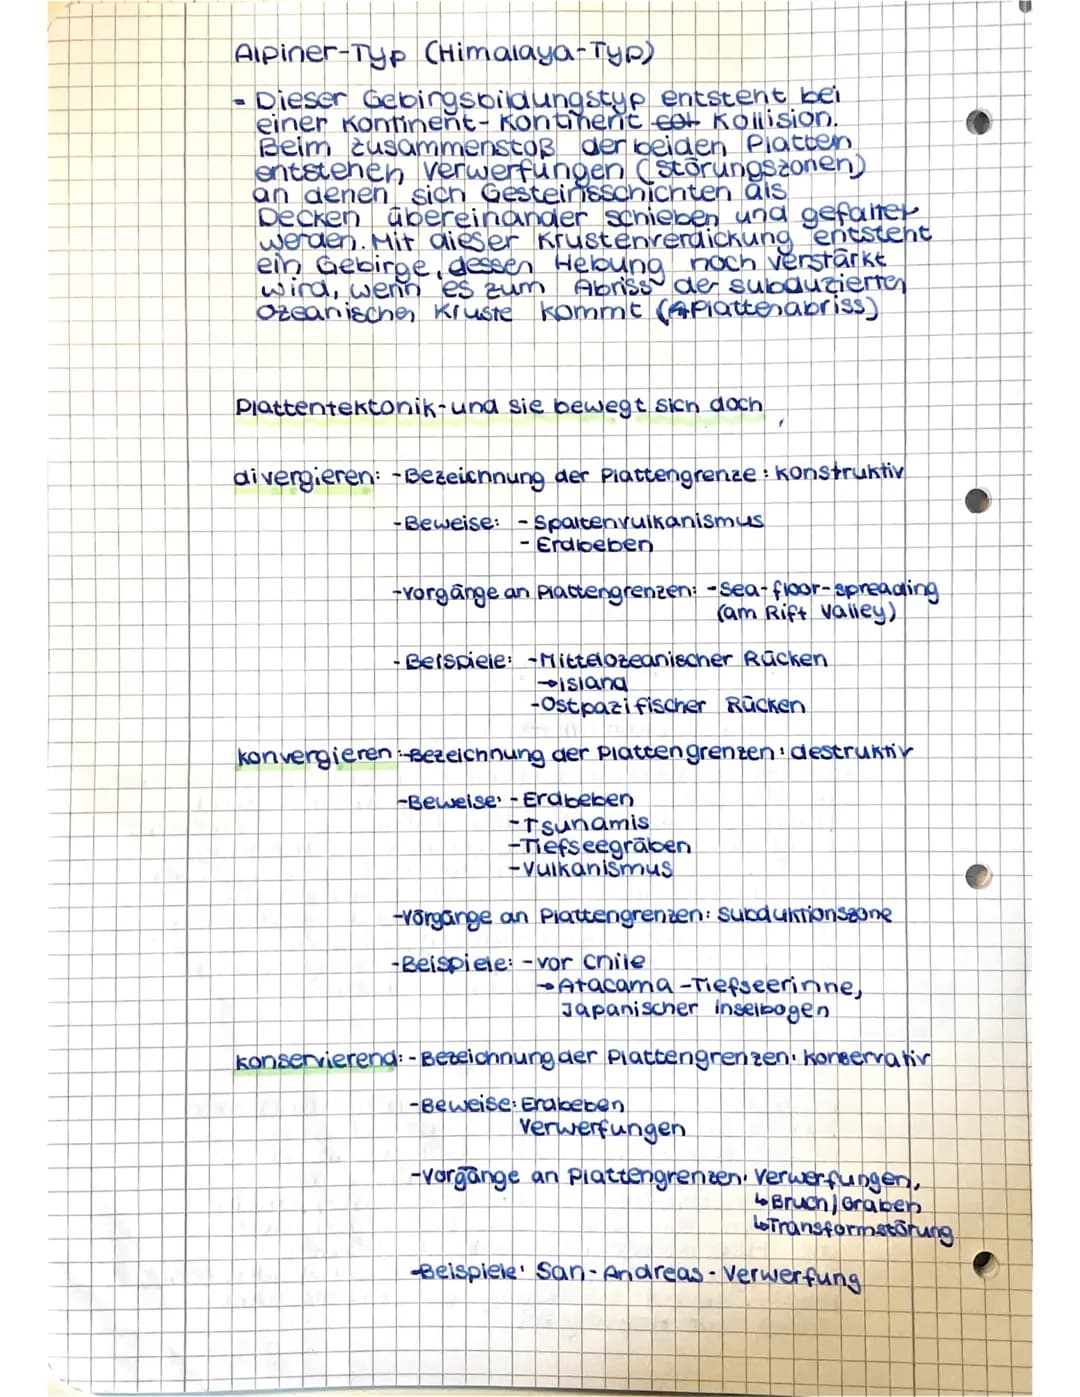 Alpiner-Typ (Himalaya-Typ)
- Dieser Gebirgsbildungstyp entsteht bei
einer Kontinent-Kontinent Kollision.
Beim Zusammenstoß der beiden Platten
entstehen Verwerfungen (Störungszonen)
an denen sich Gesteinsschichten als
Decken übereinander schieben und gefaltet
werden. Mit dieser Krustenverdickung entsteht
ein Gebirge, dessen Hebung noch verstärkt
wird, wenn es zum Abriss der subduzierten
ozeanischen Kruste kommt (Plattenabriss)
Plattentektonik-und sie bewegt sich doch
divergieren: -Bezeichnung der Plattengrenze: konstruktiv
-Beweise: -Spaltenvulkanismus
-Erdbeben
-Vorgänge an Plattengrenzen: -Sea-floor-spreading
(am Rift Valley)
-Beispiele: -Mittelozeanischer Rücken
→Island
-Ostpazifischer Rücken
konvergieren:-Bezeichnung der Plattengrenzen: destruktiv
-Beweise: -Erdbeben
-Tsunamis
-Tiefseegräben
-Vulkanismus
-Vorgänge an Plattengrenzen: Subduktionszone
-Beispiele: -vor Chile
→Atacama-Tiefseerinne,
Japanischer Inselbogen
konservierend: -Bezeichnung der Plattengrenzen: konservativ
-Beweise: Erdbeben
Verwerfungen
-Vorgänge an Plattengrenzen: Verwerfungen,
↳Bruch/Graben
↳Transformstörung
-Beispiele: San-Andreas-Verwerfung